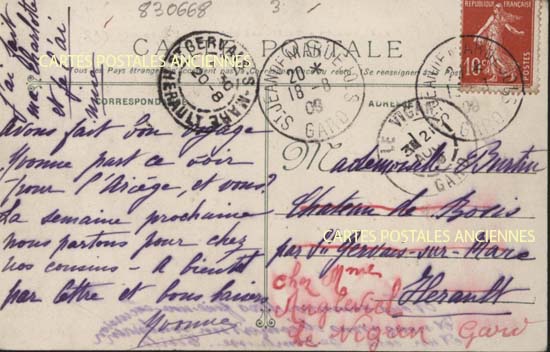 830668
3
J'ai fait
ma Charlotte
et j'ai
CARTE POSTALE
Tous les Pays étrangers
Se renseigner
CORRESPONDANCE
ADRESSE
RÉPUBLIQUE FRANÇAISE
10c
POSTES
ST GERVAIS-S-MARE
HERAULT
ST JEAN DE MARUEJOLS
20 *
18 - 8
09
GARD
LE VIGAN
GARD
avons fait bon voyage
Yvonne part ce soir
pour l'Ariège, et vous?
La semaine prochaine
nous partons pour chez
nos cousins - A bientôt
par lettre et bons baisers
Yvonne
Mademoiselle E Burtin
Chateau de Bosis
par St Gervais-sur-Mare
Herault
chez Mme
Le Vigan Gard
CARTES POSTALES ANCIENNES
CARTES POSTALES ANCIENNES
CARTES POSTALES ANCIENNES